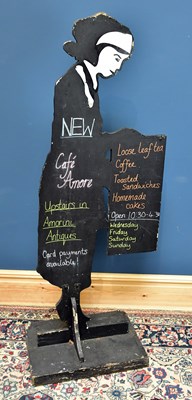 NEW
Café
Amore
Upstairs in
Amorini
Antiques
Card payments
available!
Loose leaf tea
Coffee
Toasted
Sandwiches
Homemade
cakes
Open 10:30-4:30
Wednesday
Friday
Saturday
Sunday